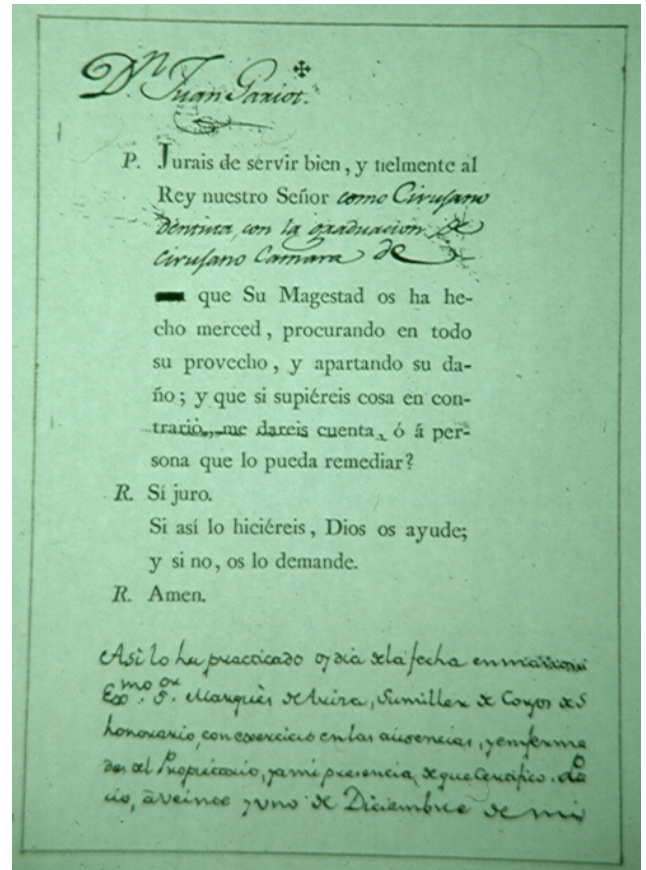 Dn. Juan Gariot.
P. Jurais de servir bien, y fielmente al
Rey nuestro Señor como Cirujano
dentista, con la graduacion de
Cirujano Camara de
que Su Magestad os ha he-
cho merced, procurando en todo
su provecho, y apartando su da-
ño; y que si supiéreis cosa en con-
trario, me dareis cuenta, ó á per-
sona que lo pueda remediar?
R. Sí juro.
Si así lo hiciéreis, Dios os ayude;
y si no, os lo demande.
R. Amen.
Asi lo ha practicado oy dia de la fecha en manos
Exmo. Sor. Marquès de Sumiller de Corps de S
honorario, con exercicio en las ausencias, y enferme
des del Propietario, y a mi presencia, de que Certifico.
cio, à veinte y uno de Diciembre de mil